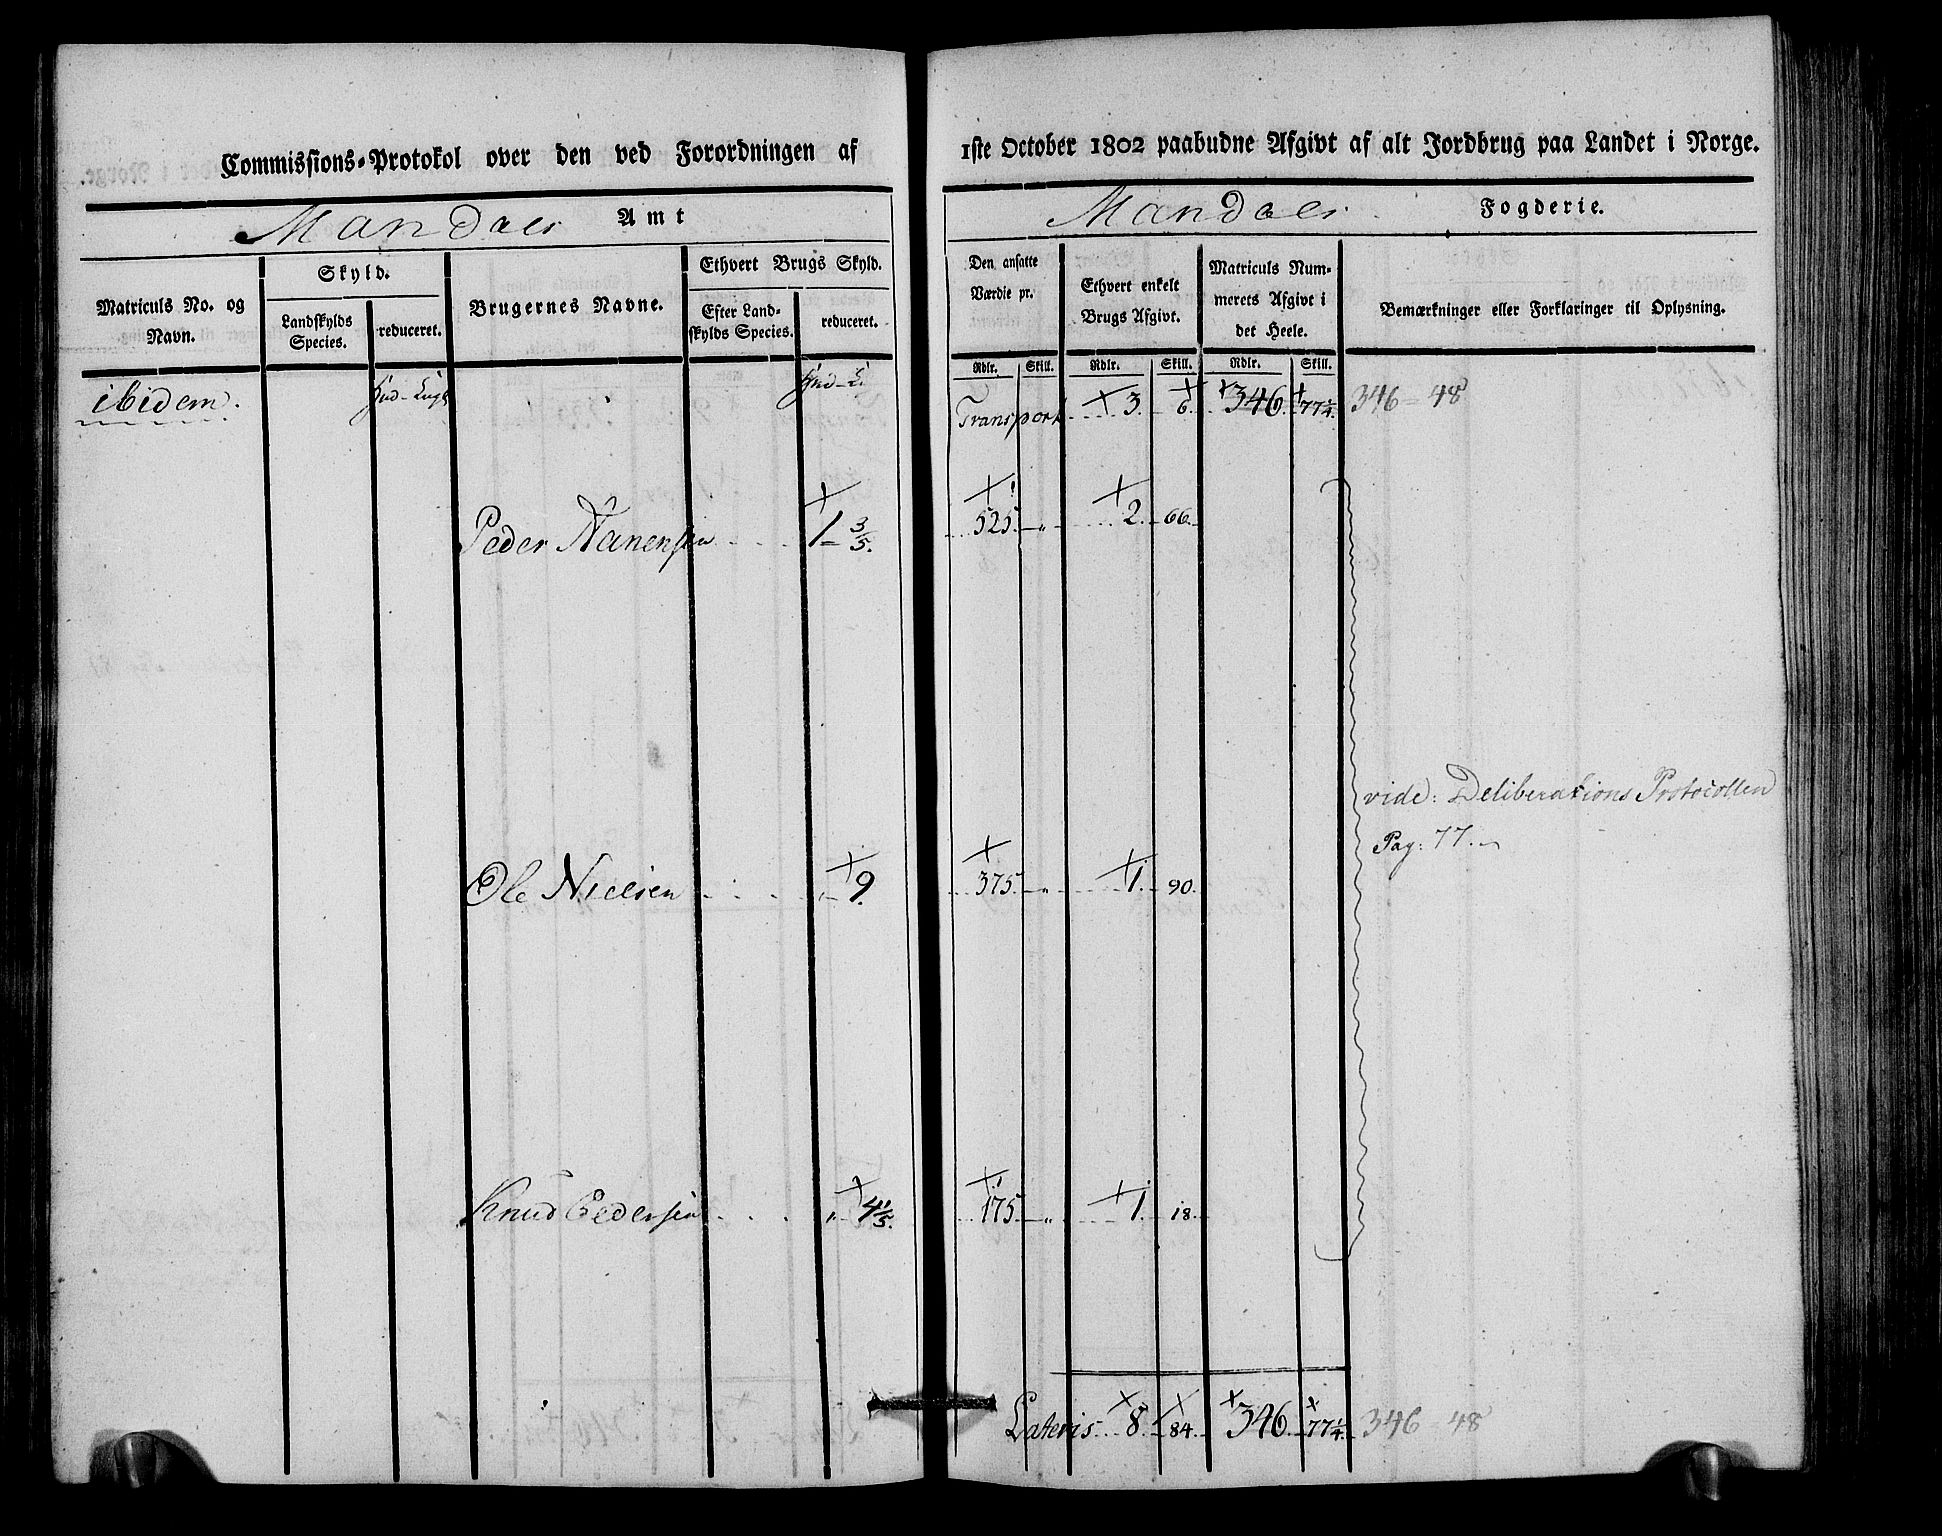 Commissions-Protokol over den ved Forordningen af 1ste October 1802 paabudne Afgivt af alt Jordbrug paa Landet i Norge.
Mandals Amt
Mandals Fogderie.
Matriculs No. og Navn.
Skyld.
Landskylds Species.
reduceret.
Brugernes Navne.
Ethvert Brugs Skyld.
Efter Landskylds Species.
reduceret.
Den ansatte Værdie pr.
Rdlr. Skill.
Ethvert enkelt Brugs Afgivt.
Rdlr. Skill.
Matriculs Nummerets Afgivt i det Heele.
Rdlr. Skill.
Bemærkninger eller Forklaringer til Oplysning.
ibidem.
Transport 3. 6. 346. 77 1/4. 346 = 48
Peder Nanensen 1 - 3/5. 525 " 2. 66.
vide: Deliberations Protocollen
Pag: 77.
Ole Nielsen " 9. 375. " 1. 90.
Knud Pedersen " 4 1/5. 175 " 1. 18.
Lateris 8. 84. 346. 77 1/4. 346 - 48